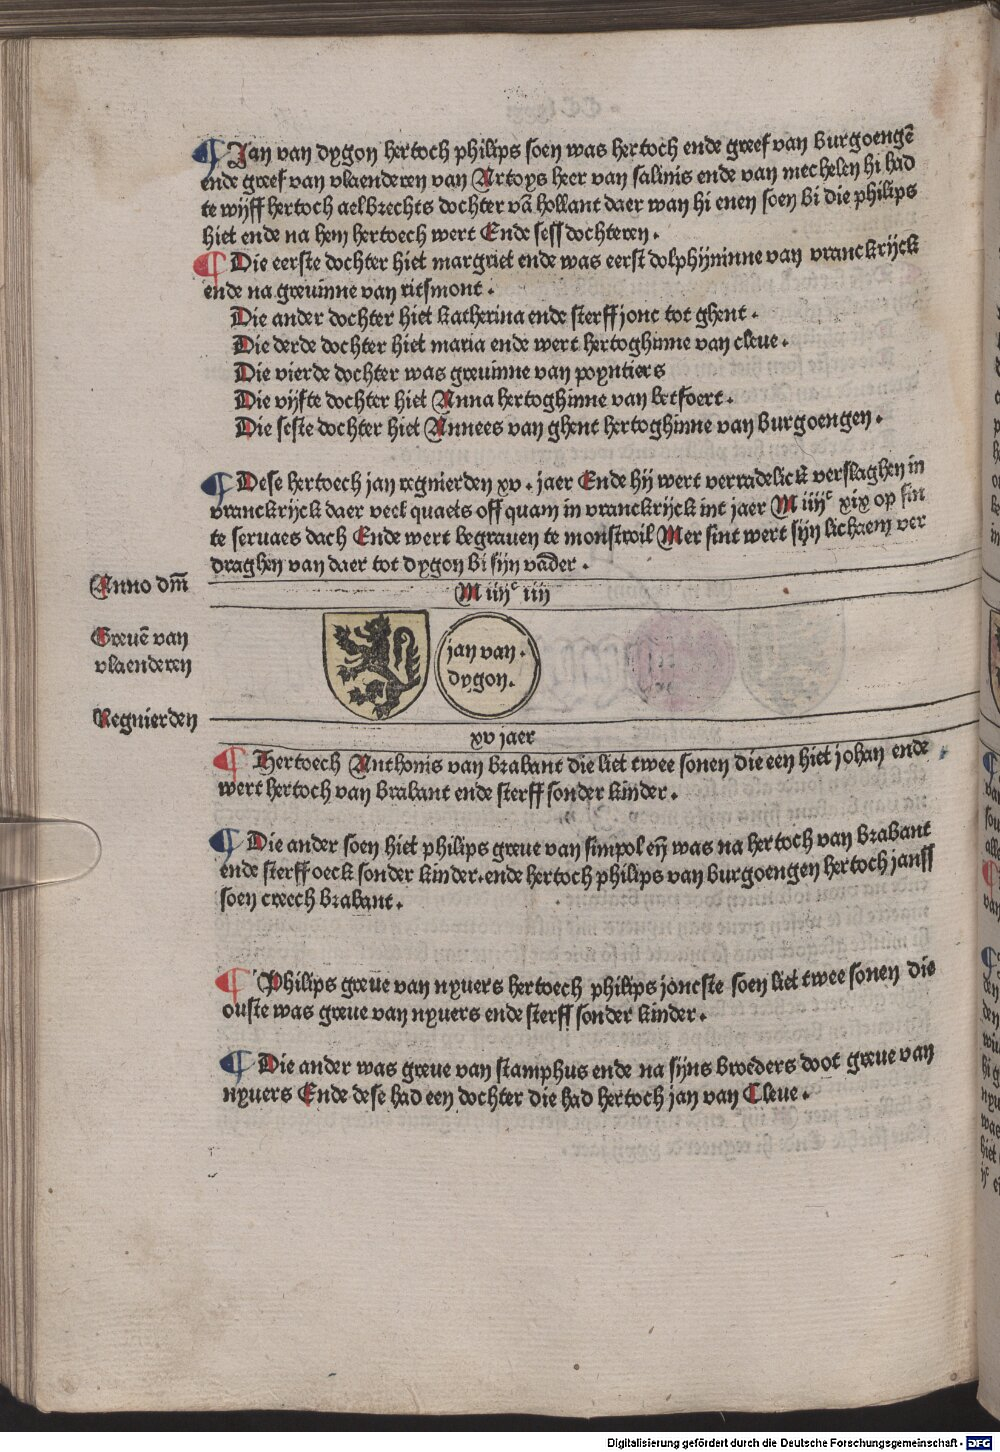 ¶ Jan van dygon hertoch philips soen was hertoch ende greef van burgoengē
ende greef van vlaenderen van Artoys heer van salinis ende van mechelen hi had
te wijff hertoch aelbrechts dochter vā hollant daer wan hi enen soen bi die philips
hiet ende na hem hertoech wert Ende sess dochteren.
¶ Die eerste dochter hiet margriet ende was eerst dolphijninne van vranckrijck
ende na greuinne van ritsmont.
Die ander dochter hiet katherina ende sterff jonc tot ghent.
Die derde dochter hiet maria ende wert hertoghinne van cleue.
Die vierde dochter was greuinne van poyntiers
Die vijfte dochter hiet Anna hertoghinne van betfoert.
Die seste dochter hiet Annees van ghent hertoghinne van burgoengen.
¶ Dese hertoech jan regnierden xv. jaer Ende hij wert verradelick verslaghen in
vranckrijck daer veel quaets off quam in vranckrijck int jaer M iiijᶜ xix op sin
te seruaes dach Ende wert begrauen te monstroil Mer sint wert sijn lichaem ver
draghen van daer tot dygon bi sijn vād̄er.
Anno dm̄
M iiijᶜ iiij
Greuē van
vlaenderen
jan van.
dygon.
Regnierden
xv jaer
¶ Hertoech Anthonis van brabant die liet twee sonen die een hiet johan ende
wert hertoch van brabant ende sterff sonder kinder.
¶ Die ander soen hiet philips greue van simpol eñ was na hertoch van brabant
ende sterff oeck sonder kinder. ende hertoch philips van burgoengen hertoch janss
soen creech brabant.
¶ Philips greue van nyuers hertoech philips joncste soen liet twee sonen die
ouste was greue van nyuers ende sterff sonder kinder.
¶ Die ander was greue van stamphus ende na sijns broeders doot greue van
nyuers Ende dese had een dochter die had hertoch jan van Cleue.
Digitalisierung gefördert durch die Deutsche Forschungsgemeinschaft - DFG